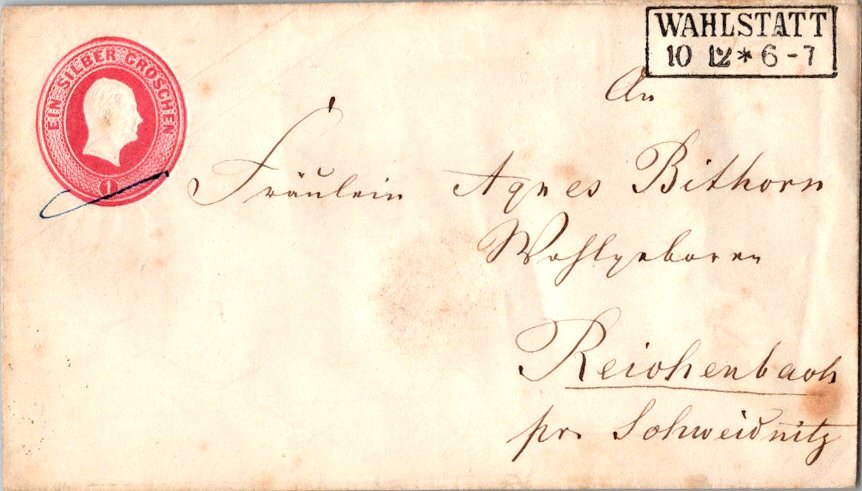 EIN SILBER GROSCHEN
1
WAHLSTATT
10 12 * 6-7
An
Fräulein Agnes Bithorn
Wohlgeboren
Reichenbach
pr. Schweidnitz